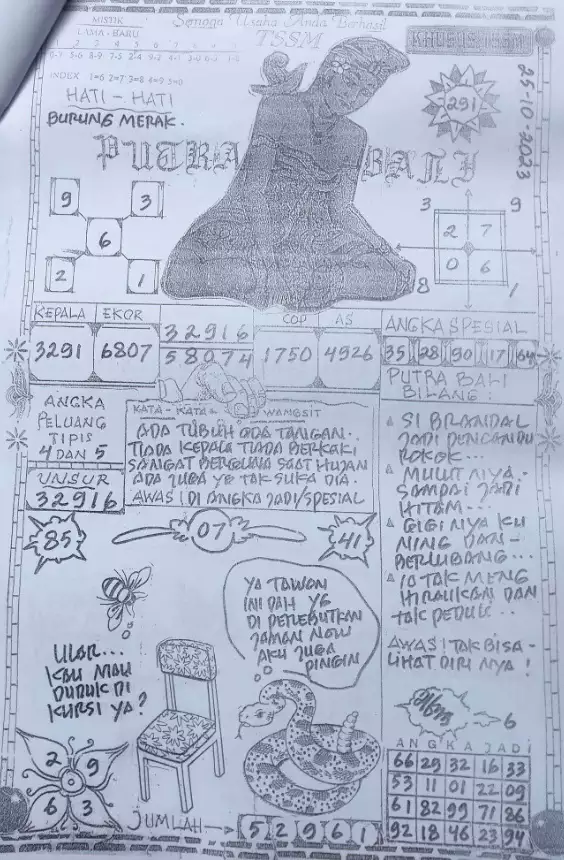 MISTIK
LAMA - BARU
Semoga Usaha Anda Berhasil
TSSM
KHUSUS TSSM
INDEX 1=6 2=7 3=8 4=9 5=0
HATI - HATI
BURUNG MERAK.
291
25-10-2023
PUTRA BALI
9 3
6
2 1
3 9
2 7
0 6
8 1
KEPALA EKOR
3291 6807
32916
58074
COP AS
1750 4926
ANGKA SPESIAL
35 28 90 17 64
ANGKA
PELUANG
TIPIS
4 DAN 5
UNSUR
32916
KATA - KATA WANGSIT
ADA TUBUH ADA TANGAN..
TIADA KEPALA TIADA BERKAKI
SANGAT BERGUNA SAAT HUJAN
ADA JUGA YG TAK SUKA DIA.
AWAS! DI ANGKA JADI/SPESIAL
PUTRA BALI
BILANG:
SI BRANDAL
JADI PENCANDU
ROKOK...
MULUTNYA
SAMPAI JADI
HITAM...
GIGINYA KU
NING DAN -
BERLUBANG...
IA TAK MENG
HIRAUKAN DAN
TAK PEDULI..
AWAS! TAK BISA -
LIHAT DIRINYA!
85
07
41
YA TAWON
INI DAH YG
DI PEREBUTKAN
JAMAN NOW
AKU JUGA
PINGIN
ULAR...
KAU MAU
DUDUK DI
KURSI YA?
2 9
6 3
JUMLAH
5 2 9 6 1
6
ANGKA JADI
66 29 32 16 33
53 11 01 22 09
61 82 99 71 86
92 18 46 23 94